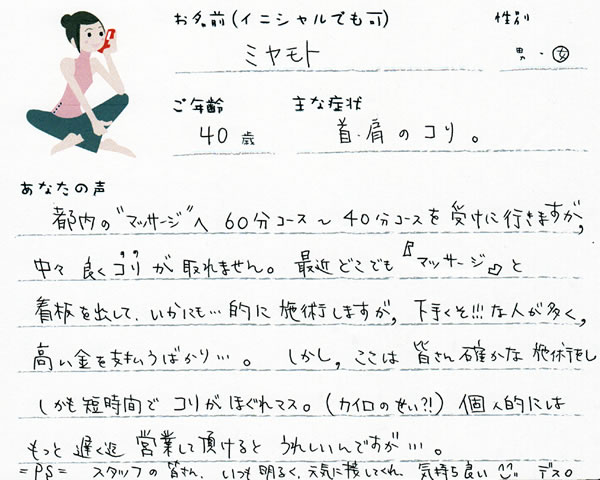 お名前(イニシャルでも可) 性別
ミヤモト 男・女
ご年齢 主な症状
40歳 首・肩のコリ。
あなたの声
都内の“マッサージ”へ60分コース〜40分コースを受けに行きますが,
中々良くコリが取れません。最近どこでも『マッサージ』と
看板を出して、いかにも…的に施術しますが, 下手くそ!!!な人が多く,
高い金を支払うばかり…。しかし, ここは皆さん確かな施術をし
しかも短時間でコリがほぐれマス。(カイロのせい?!) 個人的には
もっと遅く迄営業して頂けるとうれしいんですが…。
=PS= スタッフの皆さん、いつも明るく、元気に接してくれ、気持ち良いデス。